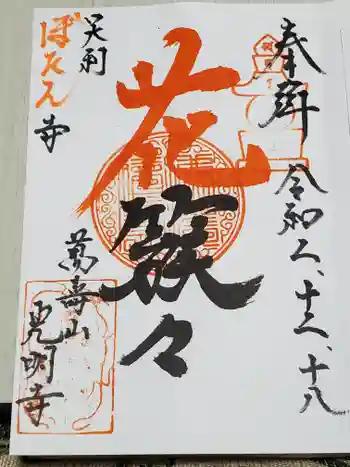 奉拝
令和二、十二、十八
花簇々
足利
ぼたん寺
萬壽山
光明寺